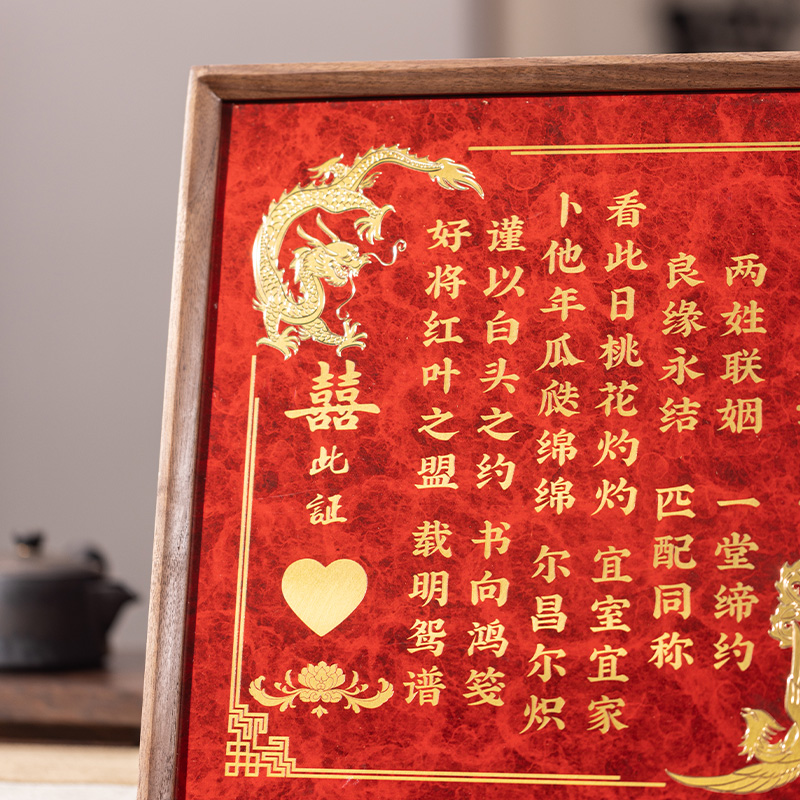 两姓联姻 一堂缔约
良缘永结 匹配同称
看此日桃花灼灼 宜室宜家
卜他年瓜瓞绵绵 尔昌尔炽
谨以白头之约 书向鸿笺
好将红叶之盟 载明鸳谱
囍
此証